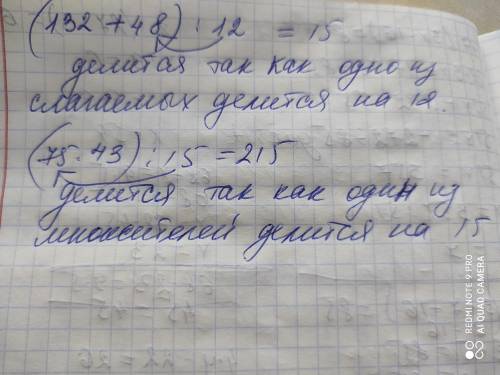 (132 + 48) : 12 = 15
делится так как одно из
слагаемых делится на 12.
(75 · 43) : 15 = 215
делится так как один из
множителей делится на 15
REDMI NOTE 9 PRO
AI QUAD CAMERA